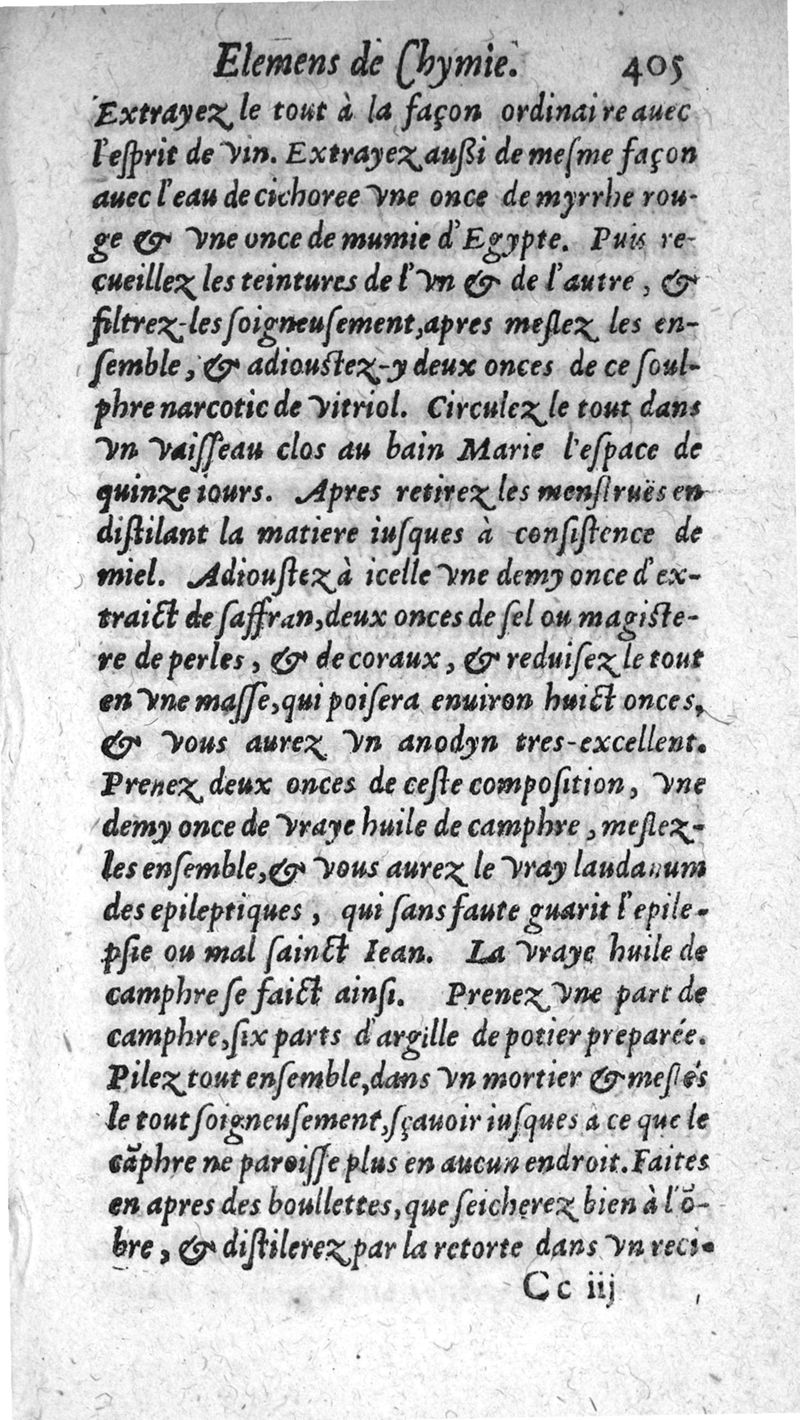 Elemens de Chymie. 405
Extrayez le tout à la façon ordinaire auec
l'eſprit de vin. Extrayez auſſi de meſme façon
auec l'eau de cichoree vne once de myrrhe rou-
ge & vne once de mumie d'Egypte. Puis re-
çueillez les teintures de l'vn & de l'autre, &
filtrez-les ſoigneuſement, apres meſlez les en-
ſemble, & adiouſtez-y deux onces de ce ſoul-
phre narcotic de vitriol. Circulez le tout dans
vn vaiſſeau clos au bain Marie l'eſpace de
quinze iours. Apres retirez les menſtruës en
diſtilant la matiere iuſques à conſiſtence de
miel. Adiouſtez à icelle vne demy once d'ex-
traict de ſaffran, deux onces de ſel ou magiſte-
re de perles, & de coraux, & reduiſez le tout
en vne maſſe, qui poiſera enuiron huict onces,
& vous aurez vn anodyn tres-excellent.
Prenez deux onces de ceſte compoſition, vne
demy once de vraye huile de camphre, meſlez-
les enſemble, & vous aurez le vray laudanum
des epileptiques, qui ſans faute guarit l'epile-
pſie ou mal ſainct Iean. La vraye huile de
camphre ſe faict ainſi. Prenez vne part de
camphre, ſix parts d'argille de potier preparée.
Pilez tout enſemble, dans vn mortier & meſlés
le tout ſoigneuſement, ſçauoir iuſques a ce que le
cãphre ne paroiſſe plus en aucun endroit. Faites
en apres des boullettes, que ſeicherez bien à l'õ-
bre, & diſtilerez par la retorte dans vn reci-
Cc iij